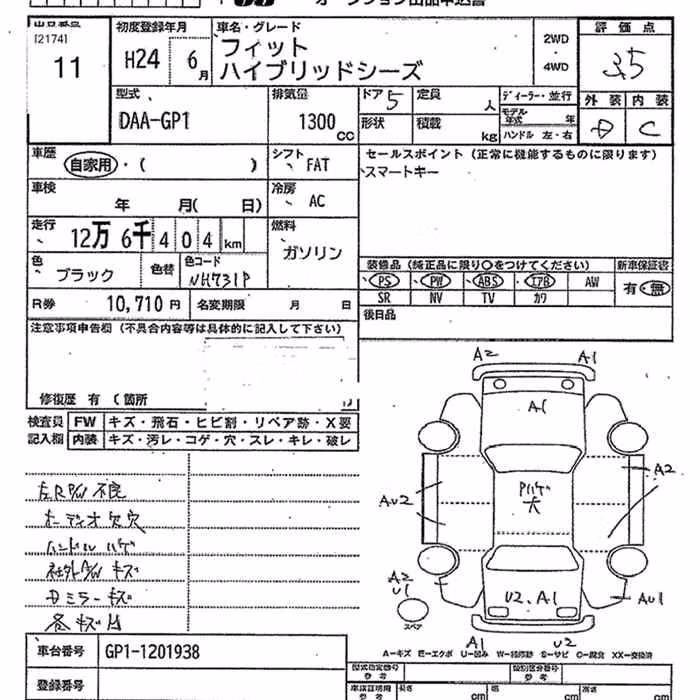 オークション出品申込書
出品番号 [2174] 11
初度登録年月 H24 6月
車名・グレード
フィット
ハイブリッドシーズ
2WD
・4WD
評価点 3.5
外装 内装 C
型式 DAA-GP1
排気量 1300 CC
ドア 5 定員 人
形状 積載 kg
ディーラー・並行
モデル年式 年
ハンドル 左・右
車歴 自家用・( )
シフト FAT
セールスポイント (正常に機能するものに限ります)
スマートキー
車検 年 月( 日)
冷房 AC
走行 12万6千404 km
燃料 ガソリン
色 ブラック 色替 色コード NH731P
装備品 (純正品に限り○をつけてください) 新車保証書
PS PW ABS エアB AW 有・無
SR NV TV カワ
R券 10,710円 名変期限 月 日
後日品
注意事項申告欄 (不具合内容等は具体的に記入して下さい)
修復歴 有 (箇所
検査員記入欄
FW キズ・飛石・ヒビ割・リペア跡・X要
内装 キズ・汚レ・コゲ・穴・スレ・キレ・破レ
左R P/W 不良
オーディオ欠穴
ハンドル ハゲ
社外A/W キズ
Dミラーキズ
各キズ凹
A2 A1
A1
A2
Pハゲ大
AU2
A2 U1
スペア
U2、A1
AU1
A1 U2
A-キズ E-エクボ U-凹み W-補修跡 S-サビ C-腐食 XX-交換済
車台番号 GP1-1201938
登録番号
型式指定番号 参考
類別区分番号 参考
車庫証明用 参考 長さ cm 幅 cm 高さ cm